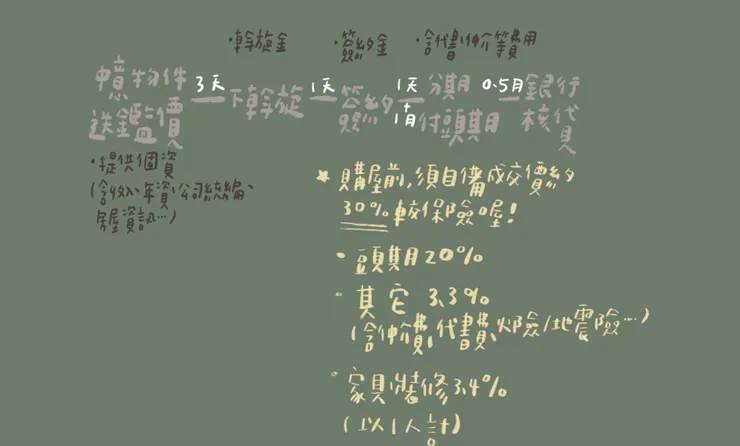 ・斡旋金 ・簽約金 ・含代書、仲介等費用
中意物件送鑑價 3天 下斡旋 1天 簽約 1天~1月 分期付頭期 0.5月 銀行核貸
・提供個資
(含收入、年資、公司統編、
房屋資訊…)
★ 購屋前,須自備成交價約
30%較保險喔!
・頭期月20%
・其它 3.3%
(含仲介費、代書費、火險/地震險…)
・家具裝修3.4%
(以1人計)